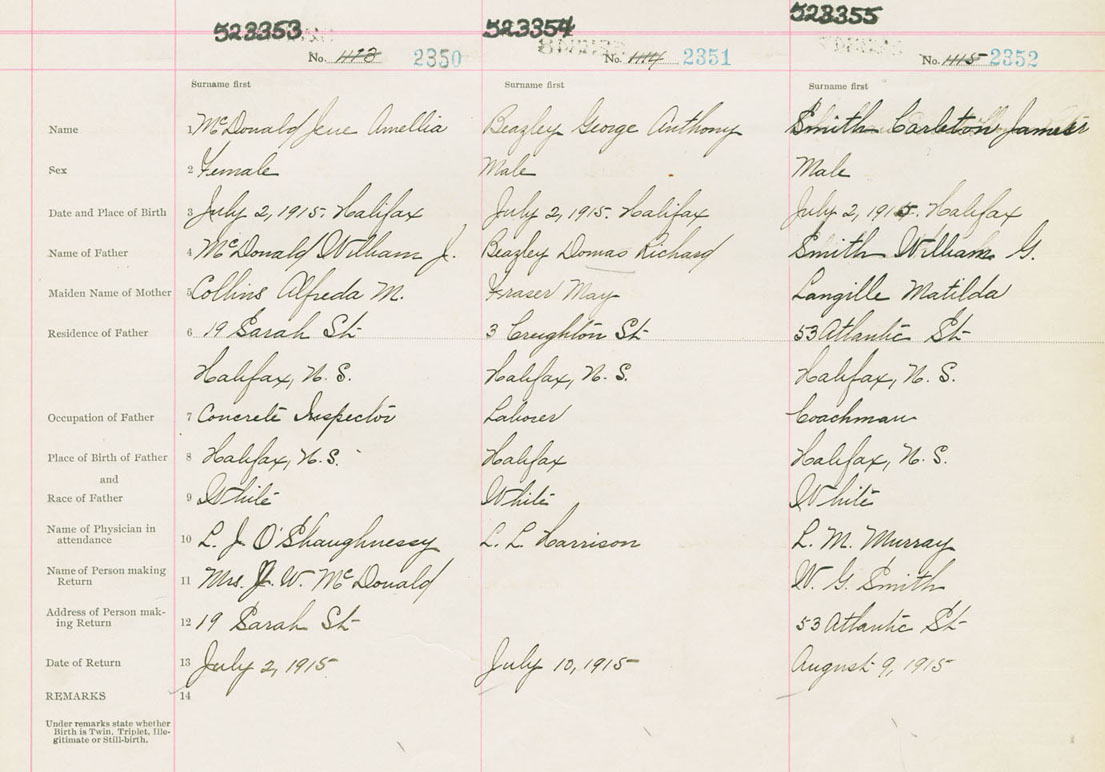 523353 523354 523355
No. 1113 2350 No. 1114 2351 No. 1115 2352
Surname first Surname first Surname first
Name 1 McDonald Amellia Beazley George Anthony Smith Carleton James
Sex 2 Female Male Male
Date and Place of Birth 3 July 2, 1915. Halifax July 2, 1915. Halifax July 2, 1915. Halifax
Name of Father 4 McDonald William J. Beazley Domas Richard Smith William G.
Maiden Name of Mother 5 Collins Alfreda M. Fraser May Langille Matilda
Residence of Father 6 19 Sarah St 3 Creighton St 53 Atlantic St
Halifax, N. S. Halifax, N. S. Halifax, N. S.
Occupation of Father 7 Concrete Inspector Laborer Coachman
Place of Birth of Father 8 Halifax, N. S. Halifax Halifax, N. S.
and
Race of Father 9 White White White
Name of Physician in
attendance 10 L. J. O'Shaughnessy L. L. Harrison L. M. Murray
Name of Person making
Return 11 Mrs. J. W. McDonald W. G. Smith
Address of Person mak-
ing Return 12 19 Sarah St 53 Atlantic St
Date of Return 13 July 2, 1915 July 10, 1915 August 9, 1915
REMARKS 14
Under remarks state whether
Birth is Twin, Triplet, Ille-
gitimate or Still-birth.